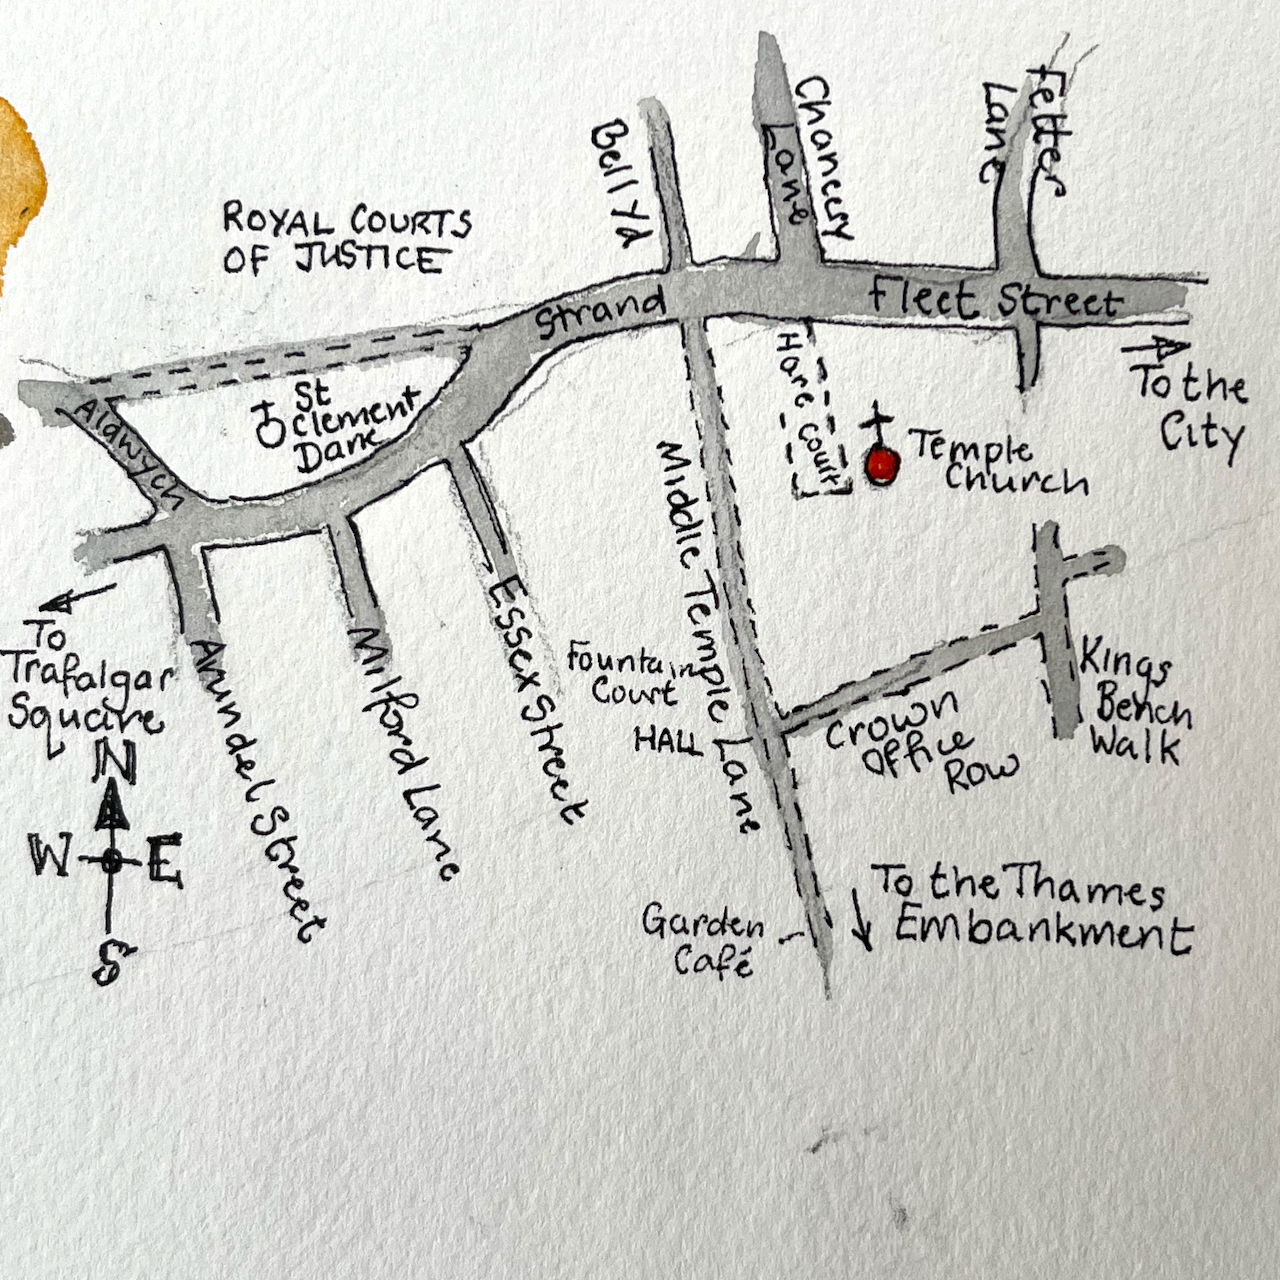 Bell Yd
Chancery
Lane
Fetter
Lane
ROYAL COURTS
OF JUSTICE
Strand
Fleet Street
To the
City
Aldwych
St
Clement
Dane
Hare Court
Temple
Church
Middle Temple Lane
Fountain
Court
HALL
Crown
Office
Row
Kings
Bench
Walk
Essex Street
Milford Lane
Arundel Street
To
Trafalgar
Square
N
W E
S
To the Thames
Embankment
Garden
Café